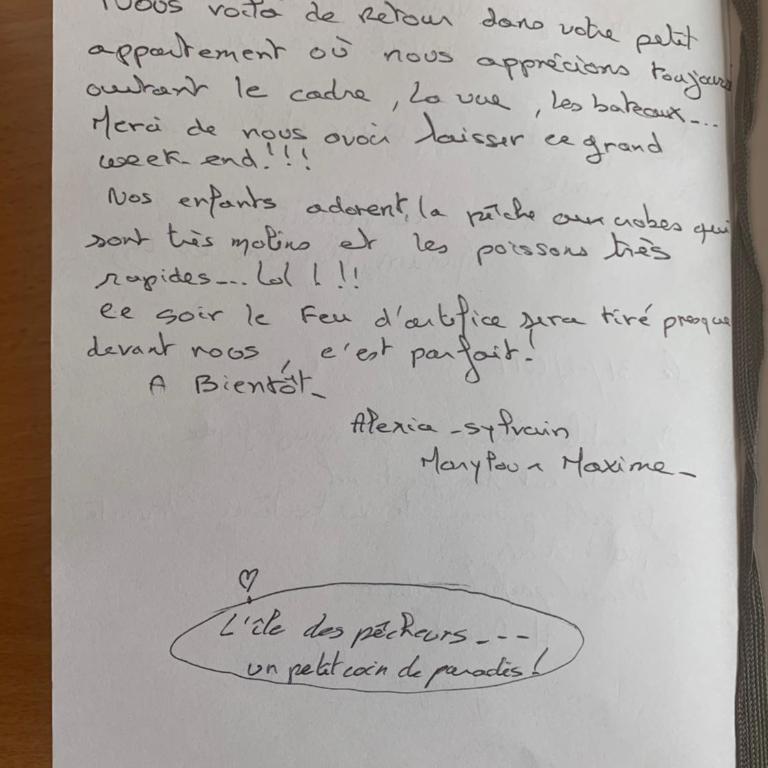 Nous voila de Retour dans votre petit
appartement où nous apprécions toujours
autant le cadre, la vue, les bateaux....
Merci de nous avoir laisser ce grand
week-end!!!
Nos enfants adorent, la pêche aux crabes qui
sont très malins et les poissons très
rapides.... Lol !!!
Ce soir le Feu d'artifice sera tiré presque
devant nous, c'est parfait!
A Bientôt_
Alexia - Sylvain
Marylou Maxime_
L'île des pêcheurs_---
un petit coin de paradis!